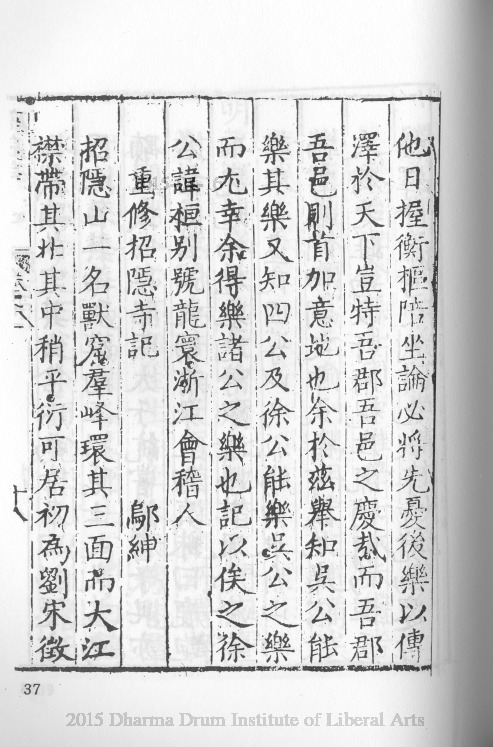 他日握衡樞陪坐論必將先憂後樂以傳
澤於天下豈特吾郡吾邑之慶哉而吾郡
吾邑則首加意地也余於茲舉知吳公能
樂其樂又知四公及徐公能樂吳公之樂
而尤幸余得樂諸公之樂也記以俟之徐
公諱桓别號龍寰浙江會稽人
重修招隱寺記 鄔紳
招隱山一名獸窟羣峰環其三面而大江
襟帶其北其中稍平衍可居初為劉宋徵
37
2015 Dharma Drum Institute of Liberal Arts